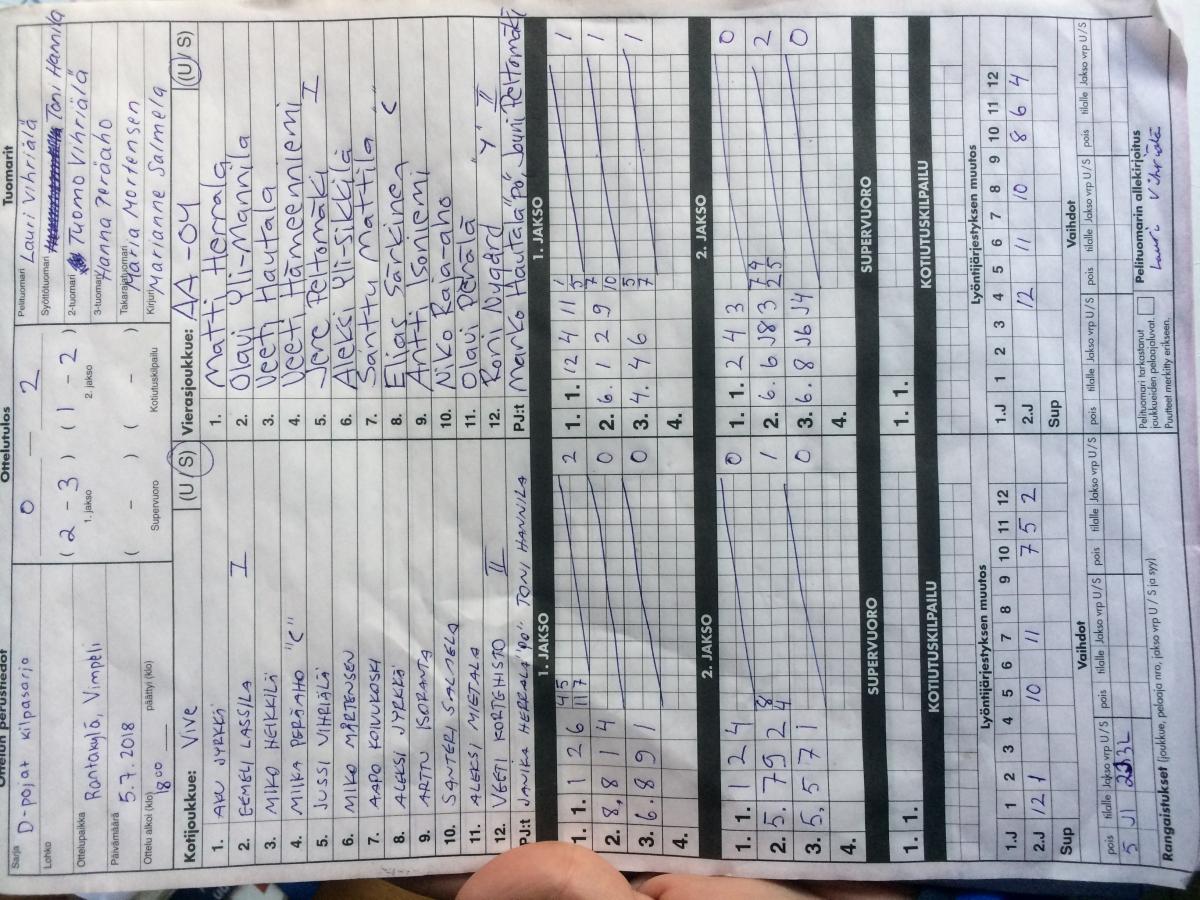 Ottelun perustiedot
Sarja D-pojat kilpasarja
Lohko
Ottelupaikka Rantakylä, Vimpeli
Päivämäärä 5.7.2018
Ottelu alkoi (klo) 18.00 päättyi (klo)
Ottelutulos
0 — 2
( 2 - 3 ) ( 1 - 2 )
1. jakso 2. jakso
( - ) ( - )
Supervuoro Kotiutuskilpailu
Tuomarit
Pelituomari Lauri Vihriälä
Syöttötuomari Toni Hannila
2-tuomari Tuomo Vihriälä
3-tuomari Hanna Peräaho
Takarajatuomari Maria Mortensen
Kirjuri Marianne Salmela
Kotijoukkue: Vive (U / S)
1. AKU JYRKKÄ
2. EEMELI LASSILA I
3. MIKO HEIKKILÄ
4. MIIKA PERÄAHO "C"
5. JUSSI VIHRIÄLÄ
6. MIKO MÅRTENSEN
7. AAPO KOIVUKOSKI
8. ALEKSI JYRKKÄ
9. ARTTU ISORANTA
10. SANTERI SALMELA
11. ALEKSI MIETALA
12. VEETI KORTEHISTO II
PJ:t JANIKA HERRALA "PO" TONI HANNILA
Vierasjoukkue: AA-04 (U / S)
1. Matti Herrala
2. Olavi Yli-Mannila
3. Veeti Hautala
4. Veeti Hämeenniemi
5. Jere Peltomäki I
6. Alekki Yli-Sikkilä
7. Santtu Mattila
8. Elias Särkinen C
9. Antti Isoniemi
10. Niko Raja-aho
11. Olavi Perälä
12. Roni Nygård "Y" II
PJ:t Marko Hautala "PO", Jouni Peltomäki
1. JAKSO
1. 1. 1 2 6 2
2. 8, 8 1 4 0
3. 6. 8 9 1 0
4.
2. JAKSO
1. 1. 1 2 4 0
2. 5. 7 9 2 1
3. 5, 5 7 1 0
4.
SUPERVUORO
1. 1.
KOTIUTUSKILPAILU
1. JAKSO
1. 1. 12 4 11 1
2. 6. 1 2 9 10 1
3. 4. 4 6 1
4.
2. JAKSO
1. 1. 2 4 3 0
2. 6. 6 J8 3 2
3. 6. 8 J6 J4 0
4.
SUPERVUORO
1. 1.
KOTIUTUSKILPAILU
Lyöntijärjestyksen muutos
1 2 3 4 5 6 7 8 9 10 11 12
1.J
2.J 12 1 10 11 7 5 2
Sup
Vaihdot
pois tilalle Jakso vrp U / S pois tilalle Jakso vrp U / S pois tilalle Jakso vrp U / S
5 J1
Rangaistukset (joukkue, pelaaja nro, jakso vrp U / S ja syy)
Lyöntijärjestyksen muutos
1 2 3 4 5 6 7 8 9 10 11 12
1.J
2.J 12 11 10 8 6 4
Sup
Vaihdot
pois tilalle Jakso vrp U / S pois tilalle Jakso vrp U / S pois tilalle Jakso vrp U / S
Pelituomari tarkastanut
joukkueiden pelaajaluvat.
Puutteet merkitty erikseen.
Pelituomarin allekirjoitus
Lauri Vihriälä